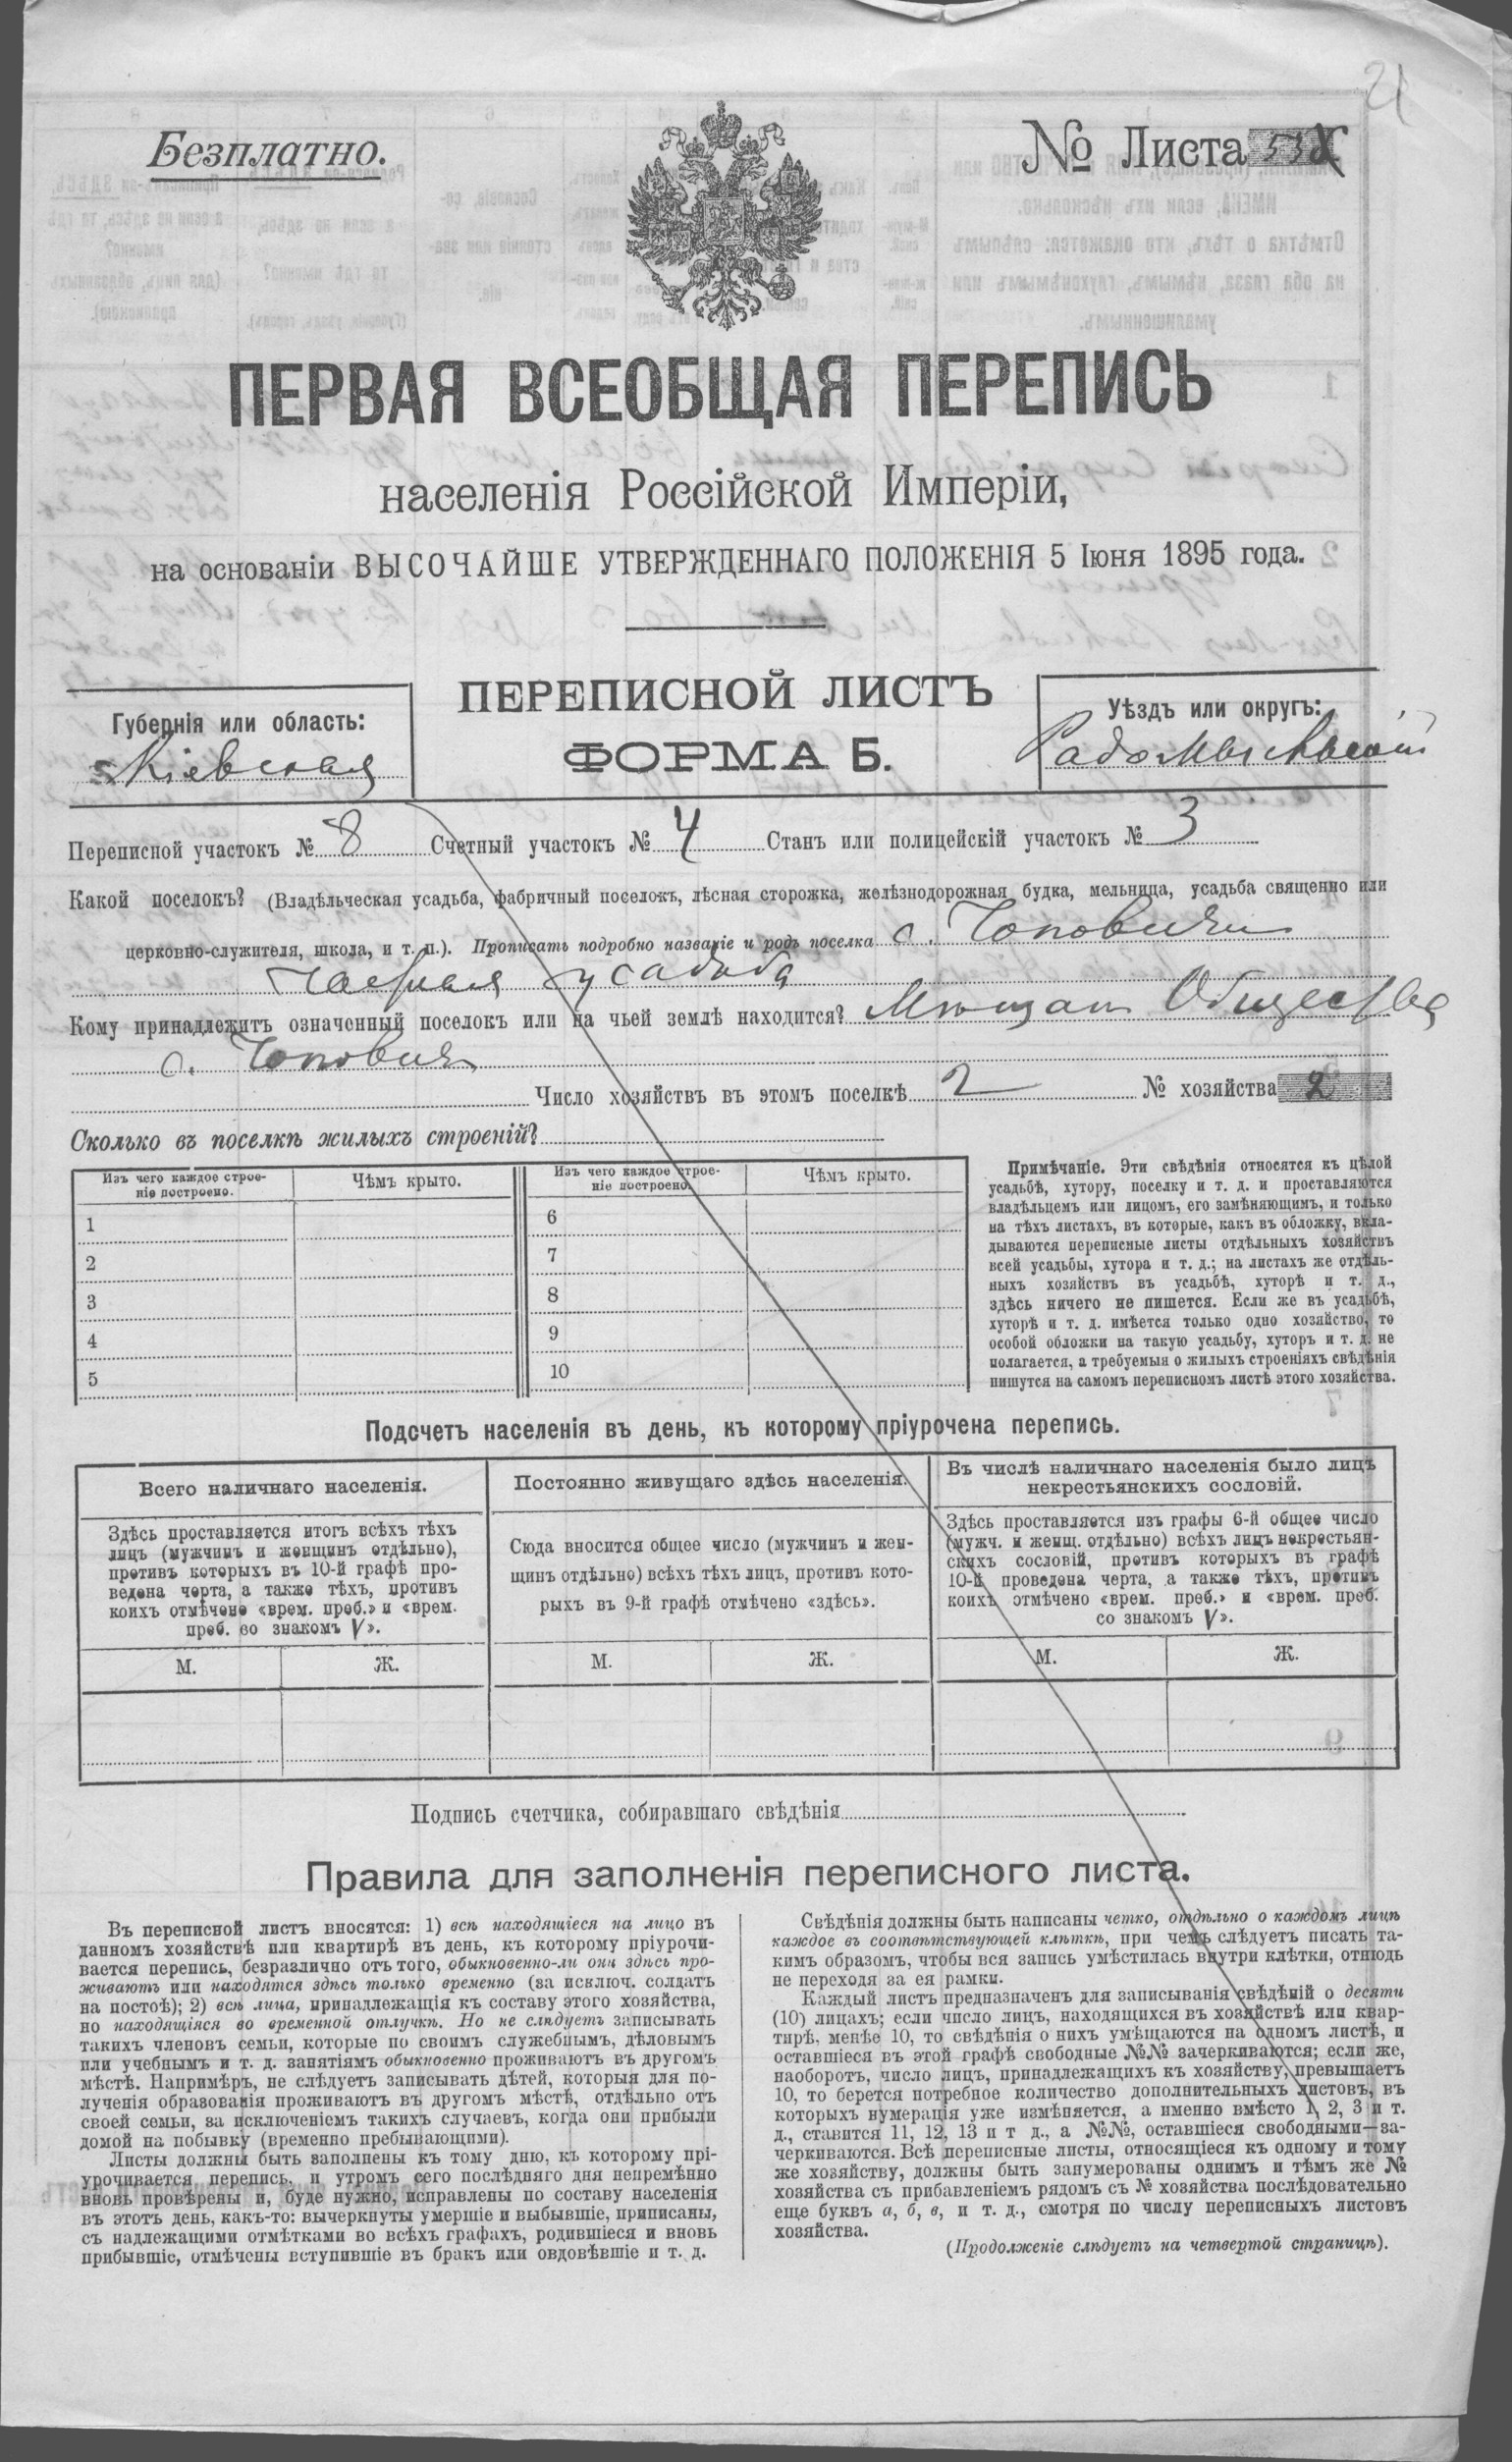 21
Безплатно.
№ Листа 53
ПЕРВАЯ ВСЕОБЩАЯ ПЕРЕПИСЬ
населенія Россійской Имперіи,
на основаніи ВЫСОЧАЙШЕ УТВЕРЖДЕННАГО ПОЛОЖЕНІЯ 5 Іюня 1895 года.
Губернія или область:
Кіевская
ПЕРЕПИСНОЙ ЛИСТЪ
ФОРМА Б.
Уѣздъ или округъ:
Радомысльскій
Переписной участокъ № 8 Счетный участокъ № 4 Станъ или полицейскій участокъ № 3
Какой поселокъ? (Владѣльческая усадьба, фабричный поселокъ, лѣсная сторожка, желѣзнодорожная будка, мельница, усадьба священно или
церковно-служителя, школа, и т. п.). Прописать подробно названіе и родъ поселка с. Чоповичи
Частная усадьба
Кому принадлежитъ означенный поселокъ или на чьей землѣ находится? Мѣщан Общества
с. Чопович
Число хозяйствъ въ этомъ поселкѣ 2 № хозяйства 2
Сколько въ поселкѣ жилыхъ строеній?
Изъ чего каждое строе-
ніе построено.
Чѣмъ крыто.
Изъ чего каждое строе-
ніе построено.
Чѣмъ крыто.
1
2
3
4
5
6
7
8
9
10
Примѣчаніе. Эти свѣдѣнія относятся къ цѣлой
усадьбѣ, хутору, поселку и т. д. и проставляются
владѣльцемъ или лицомъ, его замѣняющимъ, и только
на тѣхъ листахъ, въ которые, какъ въ обложку, вкла-
дываются переписные листы отдѣльныхъ хозяйствъ
всей усадьбы, хутора и т. д.; на листахъ же отдѣль-
ныхъ хозяйствъ въ усадьбѣ, хуторѣ и т. д.,
здѣсь ничего не пишется. Если же въ усадьбѣ,
хуторѣ и т. д. имѣется только одно хозяйство, то
особой обложки на такую усадьбу, хуторъ и т. д. не
полагается, а требуемыя о жилыхъ строеніяхъ свѣдѣнія
пишутся на самомъ переписномъ листѣ этого хозяйства.
Подсчетъ населенія въ день, къ которому пріурочена перепись.
Всего наличнаго населенія.
Здѣсь проставляется итогъ всѣхъ тѣхъ
лицъ (мужчинъ и женщинъ отдѣльно),
противъ которыхъ въ 10-й графѣ про-
ведена черта, а также тѣхъ, противъ
коихъ отмѣчено «врем. преб.» и «врем.
преб. со знакомъ V».
М.
Ж.
Постоянно живущаго здѣсь населенія.
Сюда вносится общее число (мужчинъ и жен-
щинъ отдѣльно) всѣхъ тѣхъ лицъ, противъ кото-
рыхъ въ 9-й графѣ отмѣчено «здѣсь».
М.
Ж.
Въ числѣ наличнаго населенія было лицъ
некрестьянскихъ сословій.
Здѣсь проставляется изъ графы 6-й общее число
(мужч. и женщ. отдѣльно) всѣхъ лицъ некрестьян-
скихъ сословій, противъ которыхъ въ графѣ
10-й проведена черта, а также тѣхъ, противъ
коихъ отмѣчено «врем. преб.» и «врем. преб.
со знакомъ V».
М.
Ж.
Подпись счетчика, собиравшаго свѣдѣнія
Правила для заполненія переписного листа.
Въ переписной листъ вносятся: 1) всѣ находящіеся на лицо въ
данномъ хозяйствѣ или квартирѣ въ день, къ которому пріурочи-
вается перепись, безразлично отъ того, обыкновенно-ли они здѣсь про-
живаютъ или находятся здѣсь только временно (за исключ. солдатъ
на постоѣ); 2) всѣ лица, принадлежащія къ составу этого хозяйства,
но находящіяся во временной отлучкѣ. Но не слѣдуетъ записывать
такихъ членовъ семьи, которые по своимъ служебнымъ, дѣловымъ
или учебнымъ и т. д. занятіямъ обыкновенно проживаютъ въ другомъ
мѣстѣ. Напримѣръ, не слѣдуетъ записывать дѣтей, которыя для по-
лученія образованія проживаютъ въ другомъ мѣстѣ, отдѣльно отъ
своей семьи, за исключеніемъ такихъ случаевъ, когда они прибыли
домой на побывку (временно пребывающими).
Листы должны быть заполнены къ тому дню, къ которому прі-
урочивается перепись, и утромъ сего послѣдняго дня непремѣнно
вновь провѣрены и, буде нужно, исправлены по составу населенія
въ этотъ день, какъ-то: вычеркнуты умершіе и выбывшіе, приписаны,
съ надлежащими отмѣтками во всѣхъ графахъ, родившіеся и вновь
прибывшіе, отмѣчены вступившіе въ бракъ или овдовѣвшіе и т. д.
Свѣдѣнія должны быть написаны четко, отдѣльно о каждомъ лицѣ
каждое въ соотвѣтствующей клѣткѣ, при чемъ слѣдуетъ писать та-
кимъ образомъ, чтобы вся запись умѣстилась внутри клѣтки, отнюдь
не переходя за ея рамки.
Каждый листъ предназначенъ для записыванія свѣдѣній о десяти
(10) лицахъ; если число лицъ, находящихся въ хозяйствѣ или квар-
тирѣ, менѣе 10, то свѣдѣнія о нихъ умѣщаются на одномъ листѣ, и
оставшіеся въ этой графѣ свободные №№ зачеркиваются; если же,
наоборотъ, число лицъ, принадлежащихъ къ хозяйству, превышаетъ
10, то берется потребное количество дополнительныхъ листовъ, въ
которыхъ нумерація уже измѣняется, а именно вмѣсто 1, 2, 3 и т.
д., ставится 11, 12, 13 и т д., а №№, оставшіеся свободными—за-
черкиваются. Всѣ переписные листы, относящіеся къ одному и тому
же хозяйству, должны быть занумерованы однимъ и тѣмъ же №
хозяйства съ прибавленіемъ рядомъ съ № хозяйства послѣдовательно
еще буквъ а, б, в, и т. д., смотря по числу переписныхъ листовъ
хозяйства.
(Продолженіе слѣдуетъ на четвертой страницѣ).